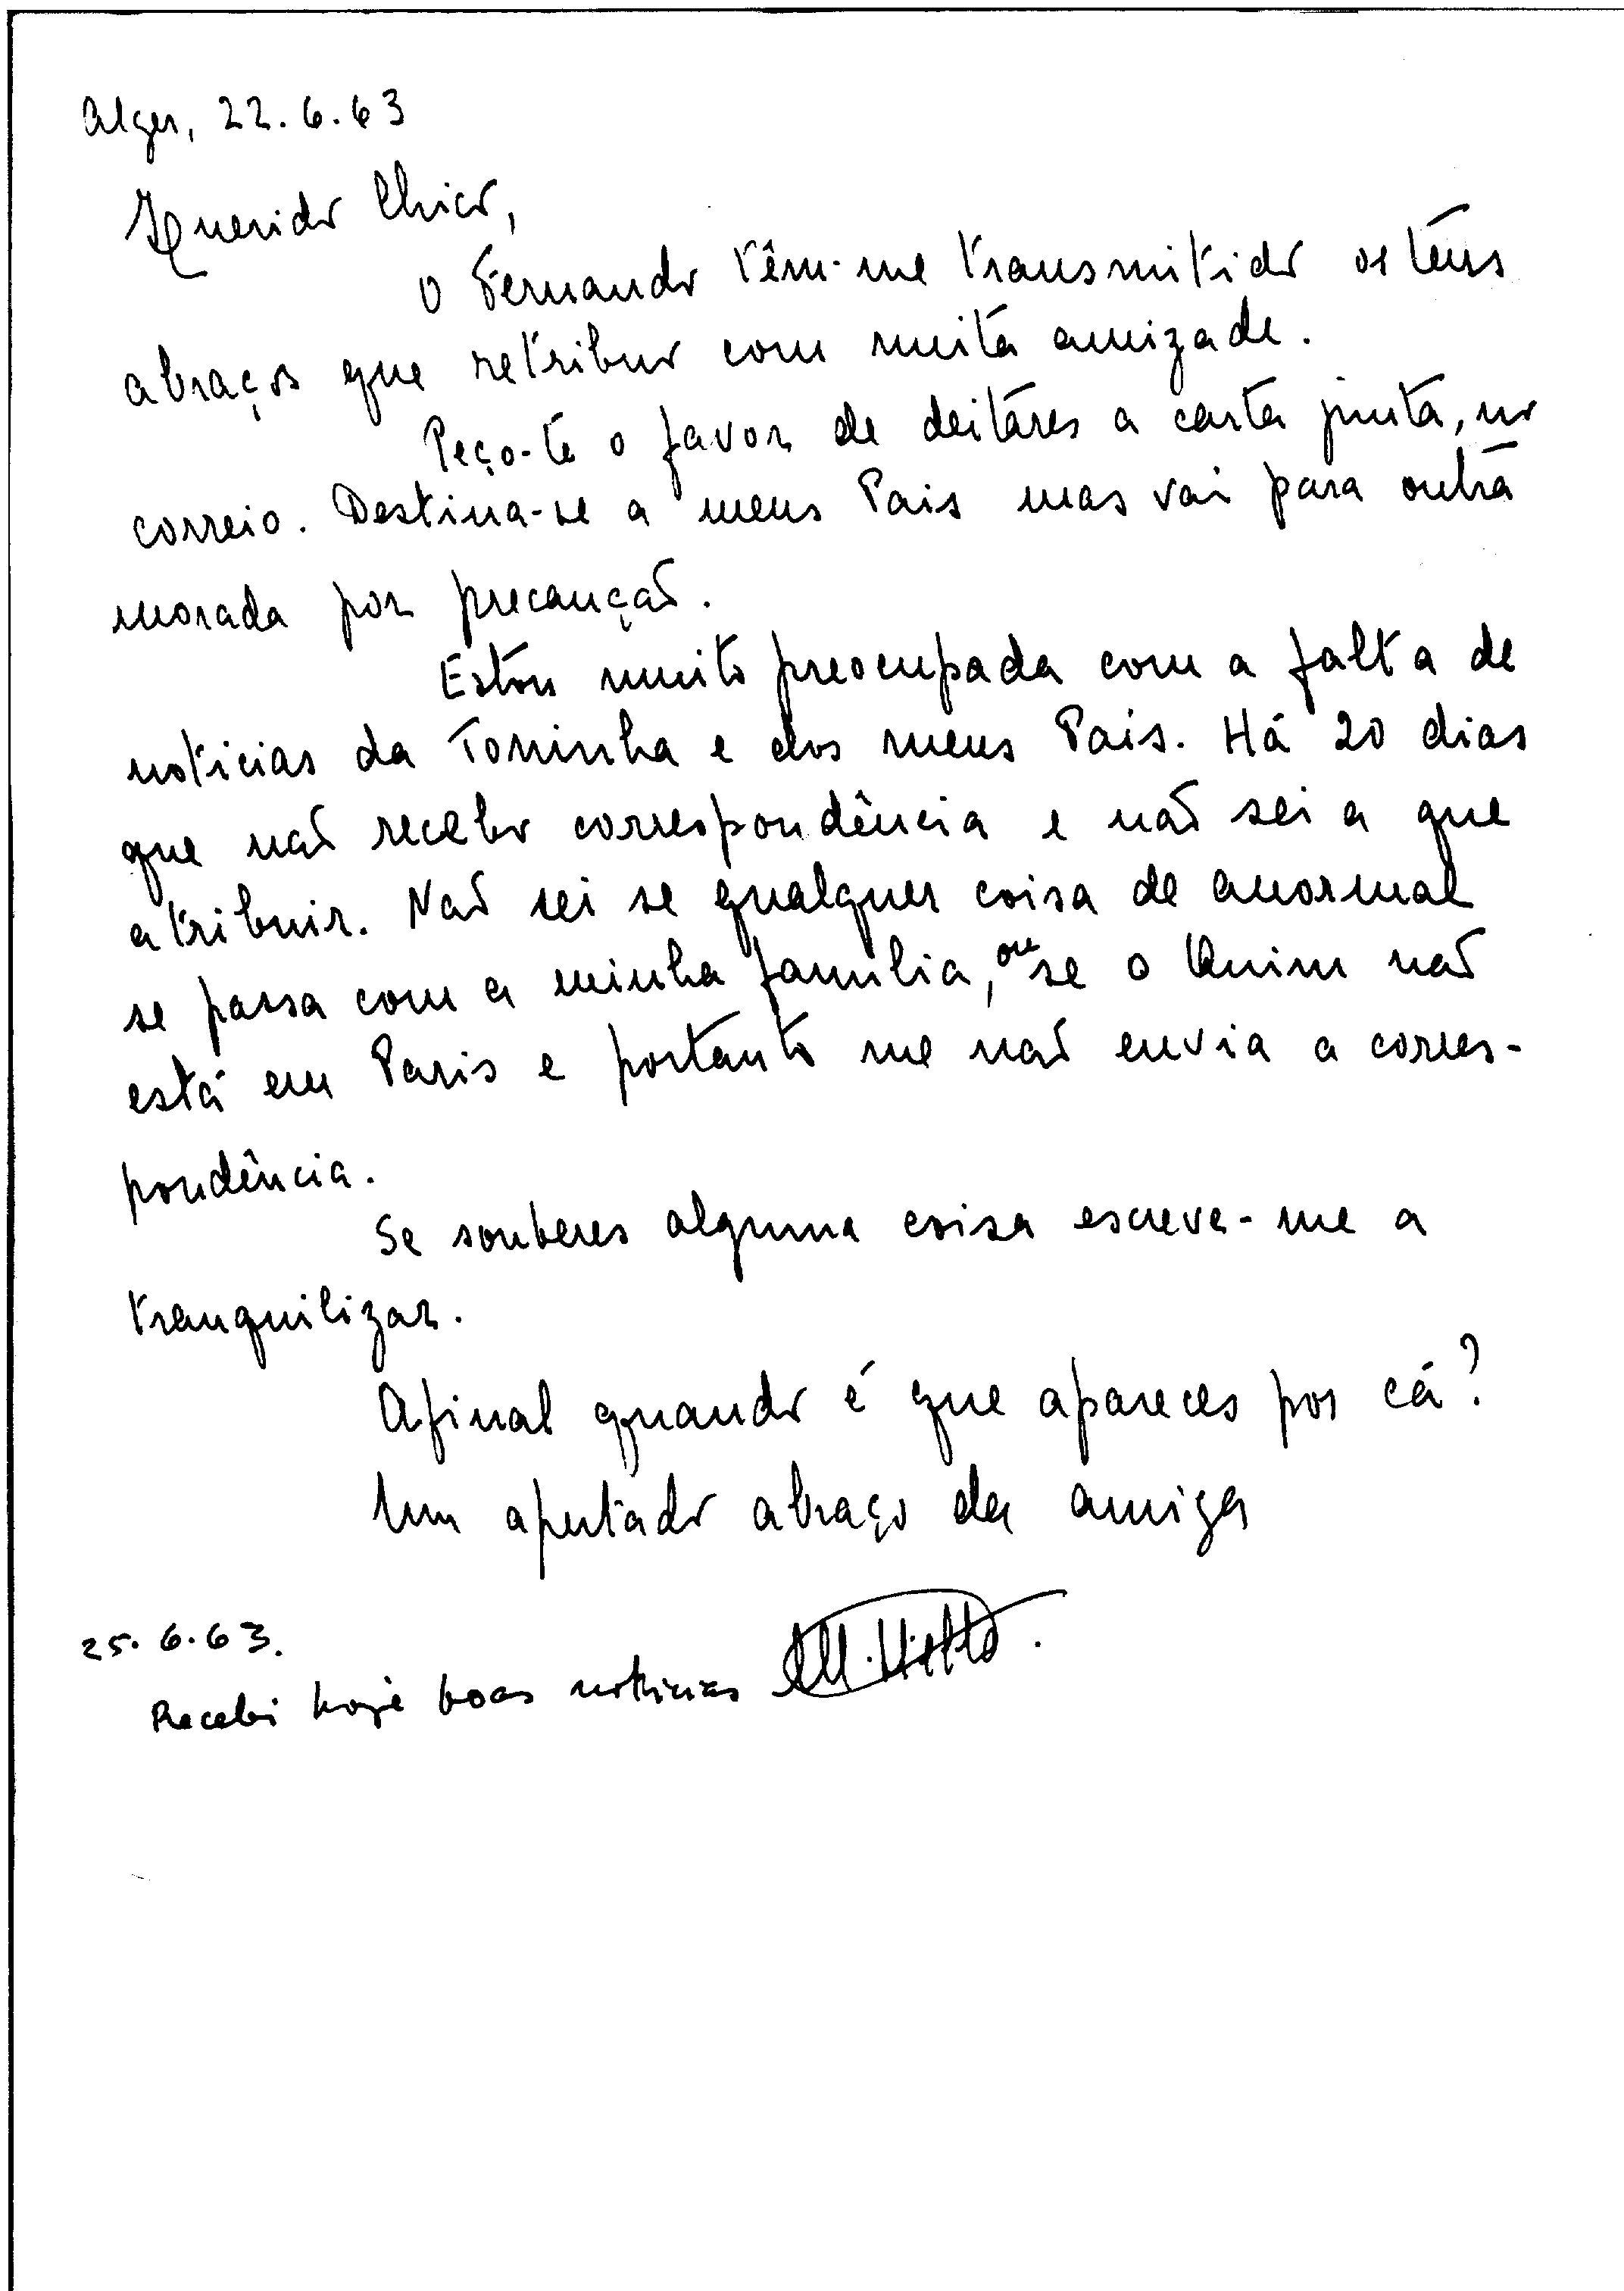 Alger, 22.6.63
Querido Chico,
O Fernando têm-me transmitido os teus
abraços que retribuo com muita amizade.
Peço-te o favor de deitares a carta junta, no
correio. Destina-se a meus Pais mas vai para outra
morada por precaução.
Estou muito preocupada com a falta de
notícias da Toninha e dos meus Pais. Há 20 dias
que não recebo correspondência e não sei a que
atribuir. Não sei se qualquer coisa de anormal
se passa com a minha família, ou se o Quim não
está em Paris e portanto me não envia a corres-
pondência.
Se souberes alguma coisa escreve-me a
tranquilizar.
Afinal quando é que apareces por cá?
Um apertado abraço da amiga
25.6.63.
Recebi hoje boas notícias